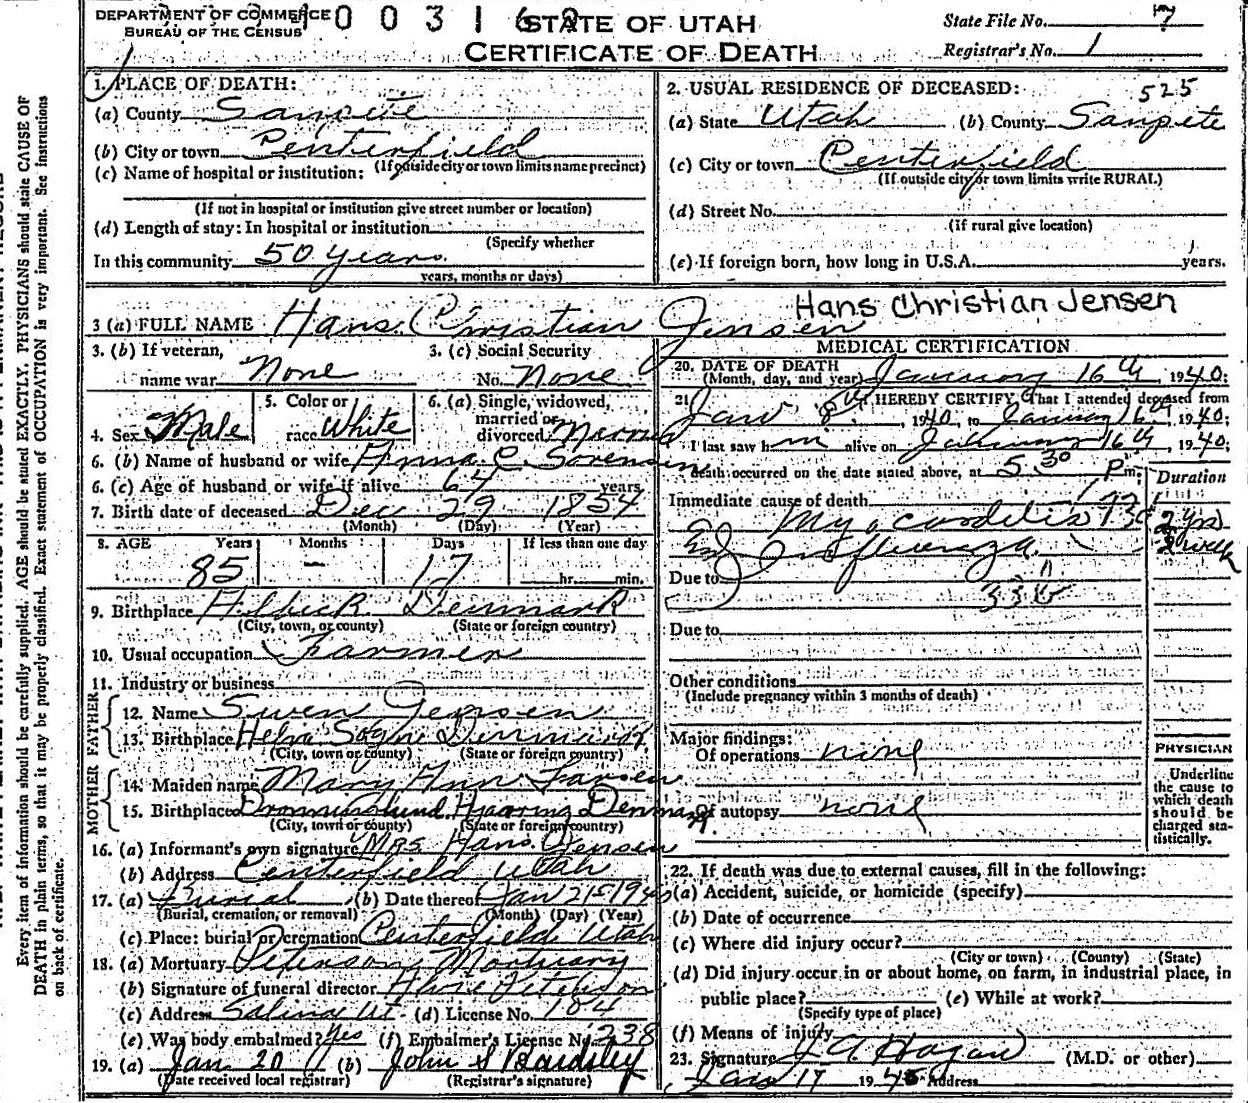 DEPARTMENT OF COMMERCE
BUREAU OF THE CENSUS
0 0 3 1 6
STATE OF UTAH
CERTIFICATE OF DEATH
State File No. 7
Registrar's No. 1
1. PLACE OF DEATH:
(a) County Sanpete
(b) City or town Centerfield
(If outside city or town limits name precinct)
(c) Name of hospital or institution:
(If not in hospital or institution give street number or location)
(d) Length of stay: In hospital or institution
(Specify whether
In this community 50 years
years, months or days)
2. USUAL RESIDENCE OF DECEASED: 525
(a) State Utah (b) County Sanpete
(c) City or town Centerfield
(If outside city or town limits write RURAL)
(d) Street No.
(If rural give location)
(e) If foreign born, how long in U.S.A. years.
3 (a) FULL NAME Hans Christian Jensen
Hans Christian Jensen
3. (b) If veteran,
name war None
3. (c) Social Security
No. None
4. Sex Male
5. Color or
race White
6. (a) Single, widowed,
married or
divorced Married
6. (b) Name of husband or wife Anna C. Sorensen
6. (c) Age of husband or wife if alive 64 years
7. Birth date of deceased Dec 29 1854
(Month) (Day) (Year)
8. AGE Years Months Days If less than one day
85 - 17 hr. min.
9. Birthplace Denmark
(City, town, or county) (State or foreign country)
10. Usual occupation Farmer
11. Industry or business
FATHER
12. Name Swen Jensen
13. Birthplace Denmark
(City, town or county) (State or foreign country)
MOTHER
14. Maiden name Mary Ann Larsen
15. Birthplace Hjorring Denmark
(City, town or county) (State or foreign country)
16. (a) Informant's own signature Mrs Hans Jensen
(b) Address Centerfield Utah
17. (a) Burial (b) Date thereof Jan 21 1940
(Burial, cremation, or removal) (Month) (Day) (Year)
(c) Place: burial or cremation Centerfield Utah
18. (a) Mortuary Peterson Mortuary
(b) Signature of funeral director Peterson
(c) Address Salina Ut (d) License No. 184
(e) Was body embalmed? Yes (f) Embalmer's License No. 238
19. (a) Jan. 20 (b) John S Bardsley
(Date received local registrar) (Registrar's signature)
MEDICAL CERTIFICATION
20. DATE OF DEATH
(Month, day, and year) January 16th, 1940;
21. I HEREBY CERTIFY, That I attended deceased from
Jan 8th, 1940, to January 16th, 1940;
I last saw him alive on January 16th, 1940;
death occurred on the date stated above, at 5 30 P m.
Duration
Immediate cause of death
Myocarditis 2 yrs
Influenza 2 week
Due to
33b
Due to
Other conditions
(Include pregnancy within 3 months of death)
Major findings:
Of operations none
Of autopsy none
PHYSICIAN
Underline
the cause to
which death
should be
charged sta-
tistically.
22. If death was due to external causes, fill in the following:
(a) Accident, suicide, or homicide (specify)
(b) Date of occurrence
(c) Where did injury occur?
(City or town) (County) (State)
(d) Did injury occur in or about home, on farm, in industrial place, in
public place? (e) While at work?
(Specify type of place)
(f) Means of injury
23. Signature J A Hagan (M.D. or other)
Jan 17 1940 Address
Every item of information should be carefully supplied. AGE should be stated EXACTLY. PHYSICIANS should state CAUSE OF
DEATH in plain terms, so that it may be properly classified. Exact statement of OCCUPATION is very important. See instructions
on back of certificate.